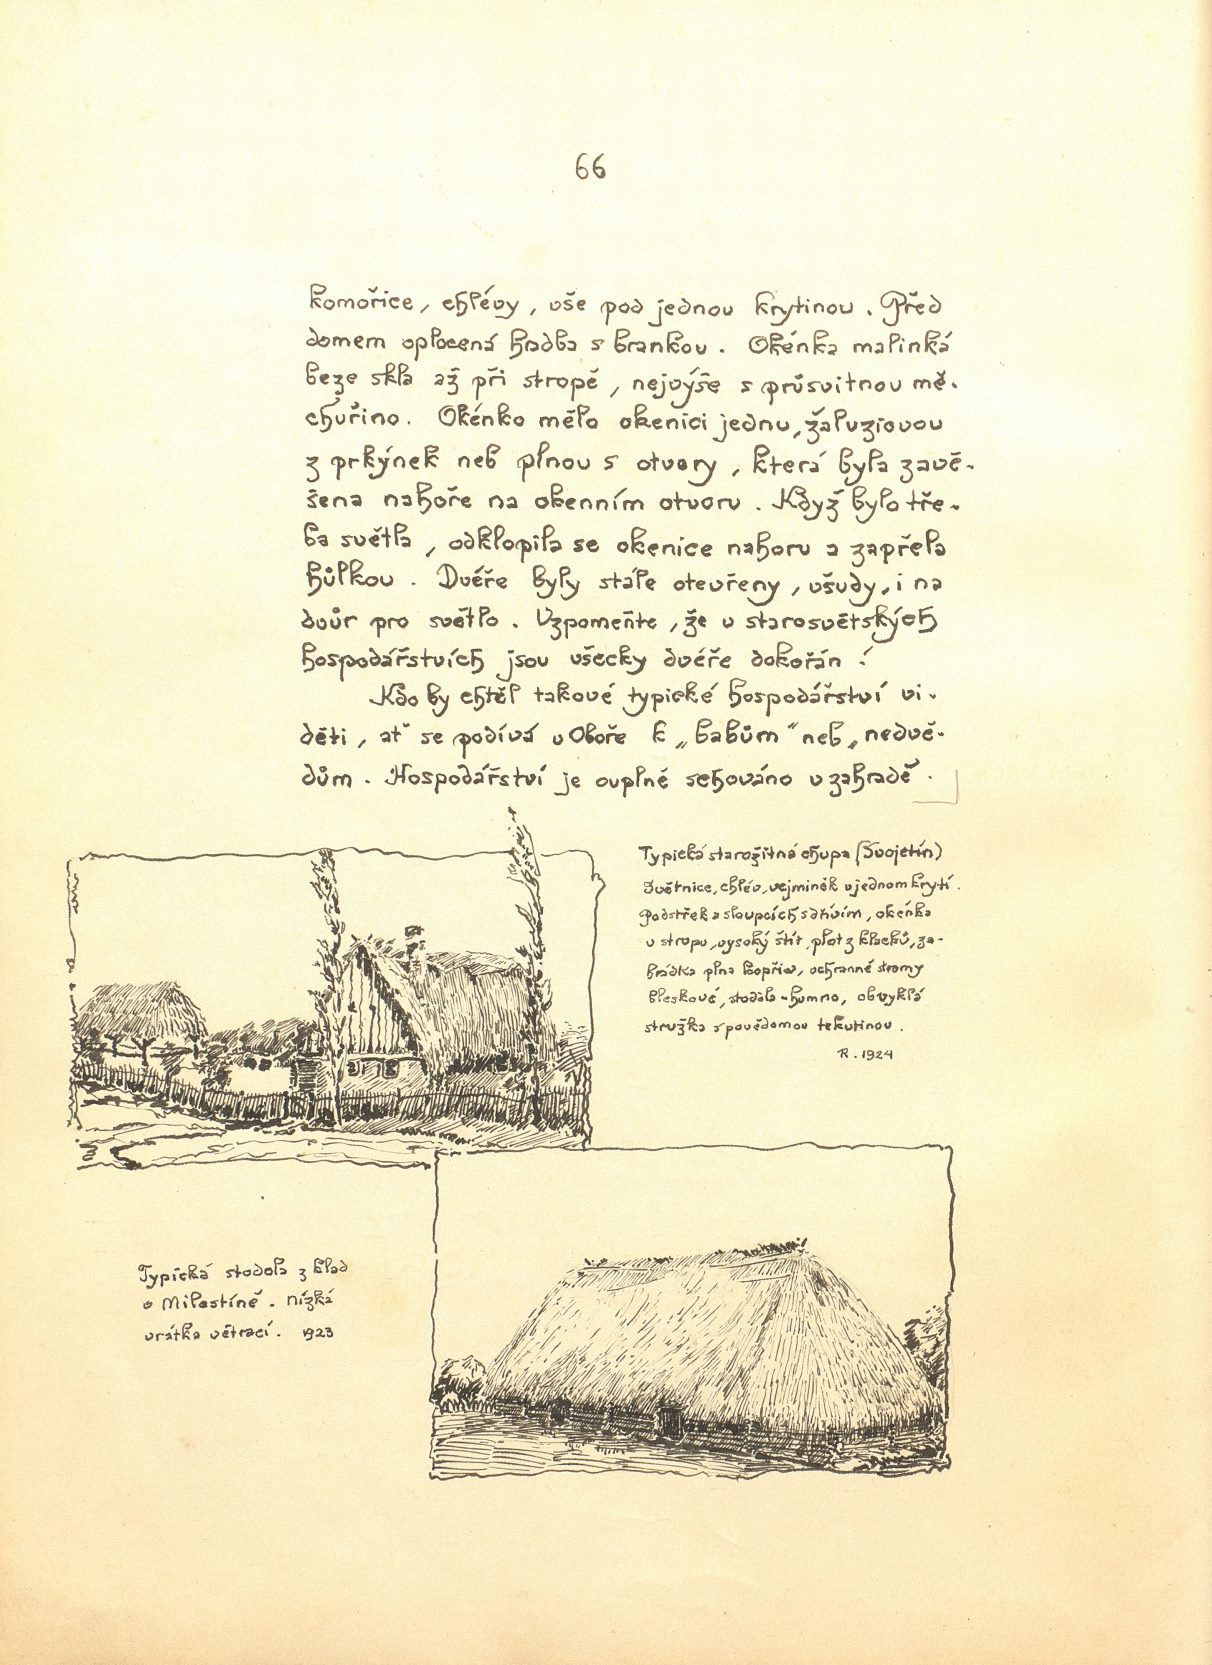 66
komořice, chlévy, vše pod jednou krytinou. Před
domem oplocená hradba s brankou. Okénka malinká
beze skla až při stropě, nejvýše s průsvitnou mě-
chuřino. Okénko mělo okenici jednu, žaluziovou
z prkýnek neb plnou s otvory, která byla zavě-
šena nahoře na okenním otvoru. Když bylo tře-
ba světla, odklopila se okenice nahoru a zapřela
hůlkou. Dvéře byly stále otevřeny, všudy, i na
dvůr pro světlo. Vzpomeňte, že v starosvětských
hospodářstvích jsou všecky dvéře dokořán!
Kdo by chtěl takové typické hospodářství vi-
děti, ať se podívá v Oboře k „babům" neb „nedvě-
dům. Hospodářství je ouplně schováno v zahradě.
Typická starožitná chupa (Svojetín)
Světnice, chlév, vejminěk v jednom krytí.
Podstřek a sloupcích s dřívím, okénka
u stropu, vysoký štít, plot z klacků, za-
hrádka plna kopřiv, ochranné stromy
bleskové, stodola-humno, obvyklá
stružka s povědomou tekutinou.
R. 1924
Typická stodola z klad
v Milostíně. Nízká
vrátka větrací. 1923